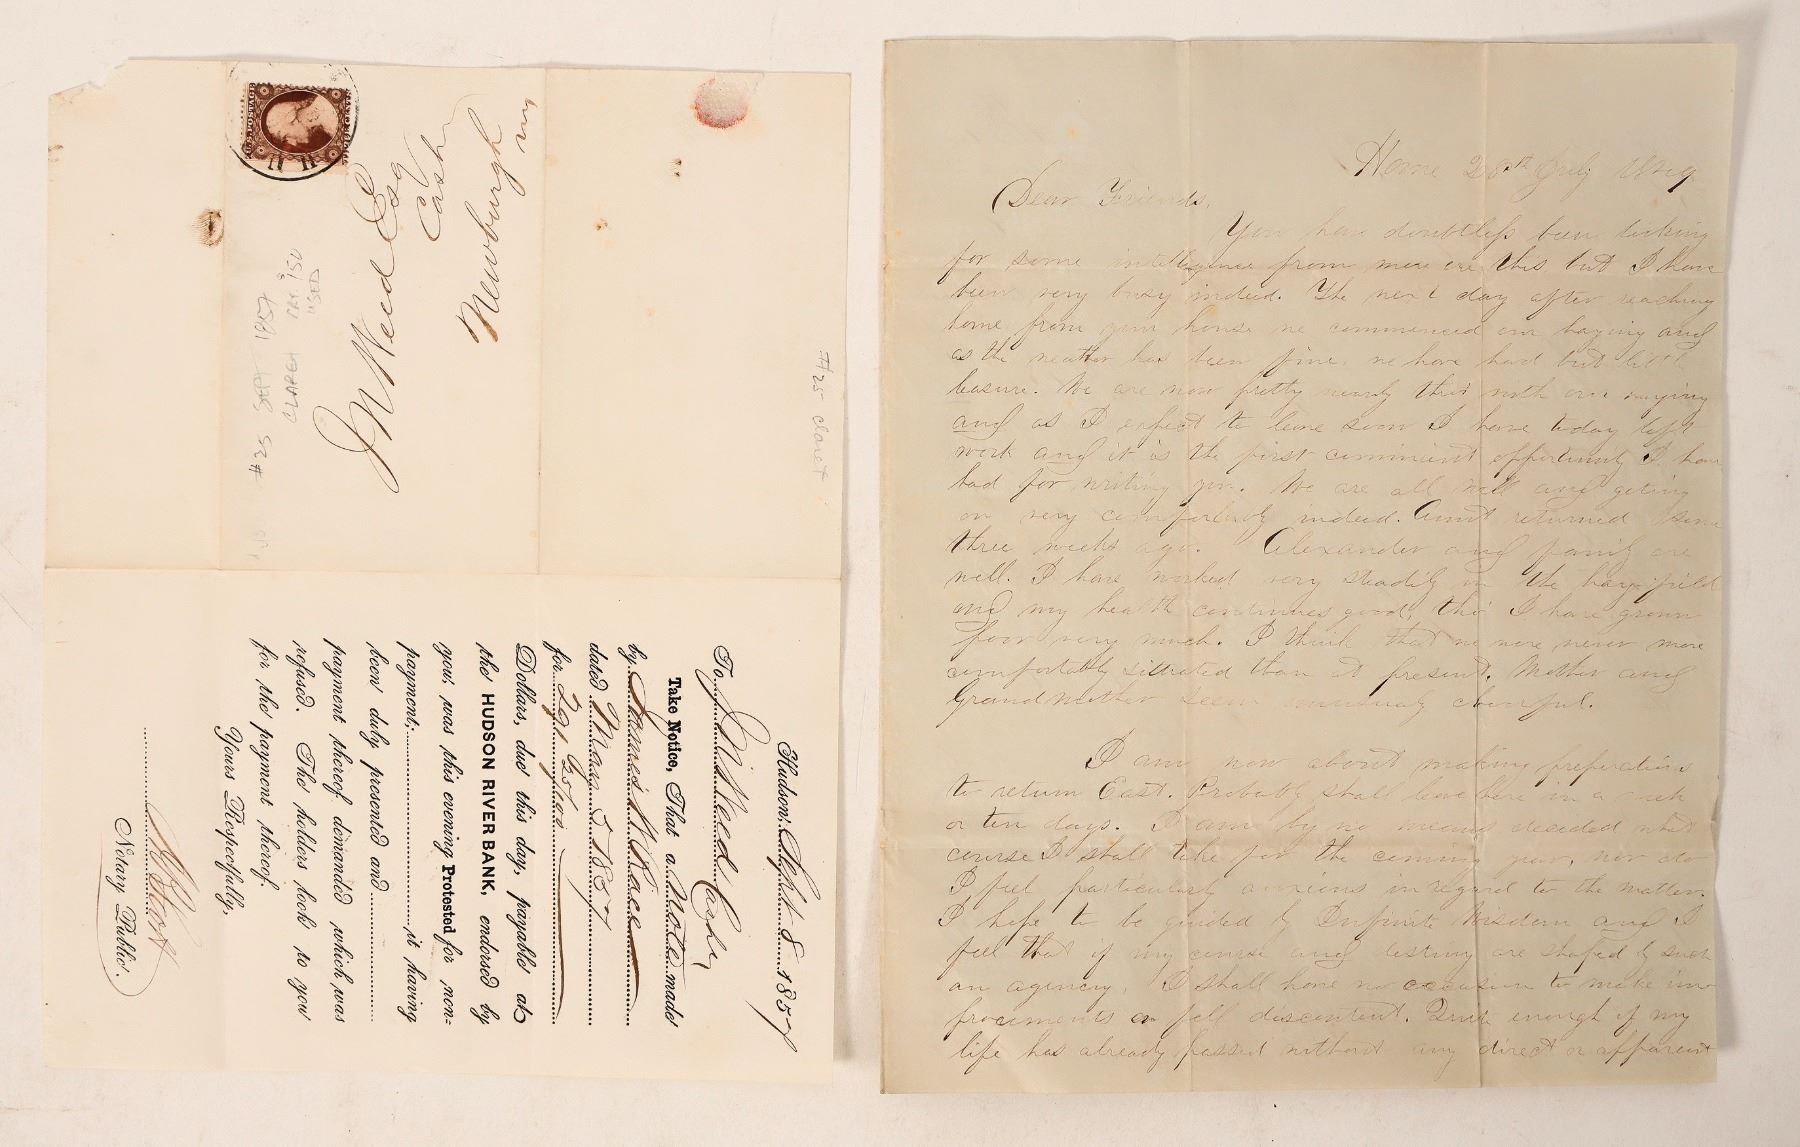 U.S. POSTAGE
THREE CENTS
J N Weed Esq
Cashr
Newburgh
NY
#25 SEPT 1857
CLARET
USED
#25 claret
Hudson, Sept 8 1857
To J N Weed Cashr
Take Notice, That a Note made
by James N Race
dated May 5 1857
for 291 25/100
Dollars, due this day, payable at
the HUDSON RIVER BANK, endorsed by
you was this evening Protested for non-
payment, it having
been duly presented and
payment thereof demanded which was
refused. The holders look to you
for the payment thereof.
Yours Respectfully,
Notary Public.
Home 28th July
Dear Friends,
You have doubtless been looking
for some intelligence from me ere this but I have
been very busy indeed. The next day after reaching
home from your house we commenced our haying and
as the weather has been fine we have had but little
leasure. We are now pretty nearly thro' with our haying
and as I expect to leave soon I have today left
work and it is the first convinient oppertunity I have
had for writing you. We are all well and geting
on very comfortably indeed. Aunt returned some
three weeks ago. Alexander and family are
well. I have worked very steadily in the hay-field
and my health continues good, tho' I have grown
poor very much. I think that we were never more
comfortably situated than at present. Mother and
Grandmother seem unusualy cheerful.
I am now about making preperations
to return East. Probably shall leave here in a week
or ten days. I am by no means decided what
course I shall take for the coming year, nor do
I feel particularly anxious in regard to the matter.
I hope to be guided by Infinite Wisdom and I
feel that if my course and destiny are shaped by such
an agency, I shall have no occasion to make im-
provements or fell discontent. Quite enough of my
life has already passed without any direct or apparent